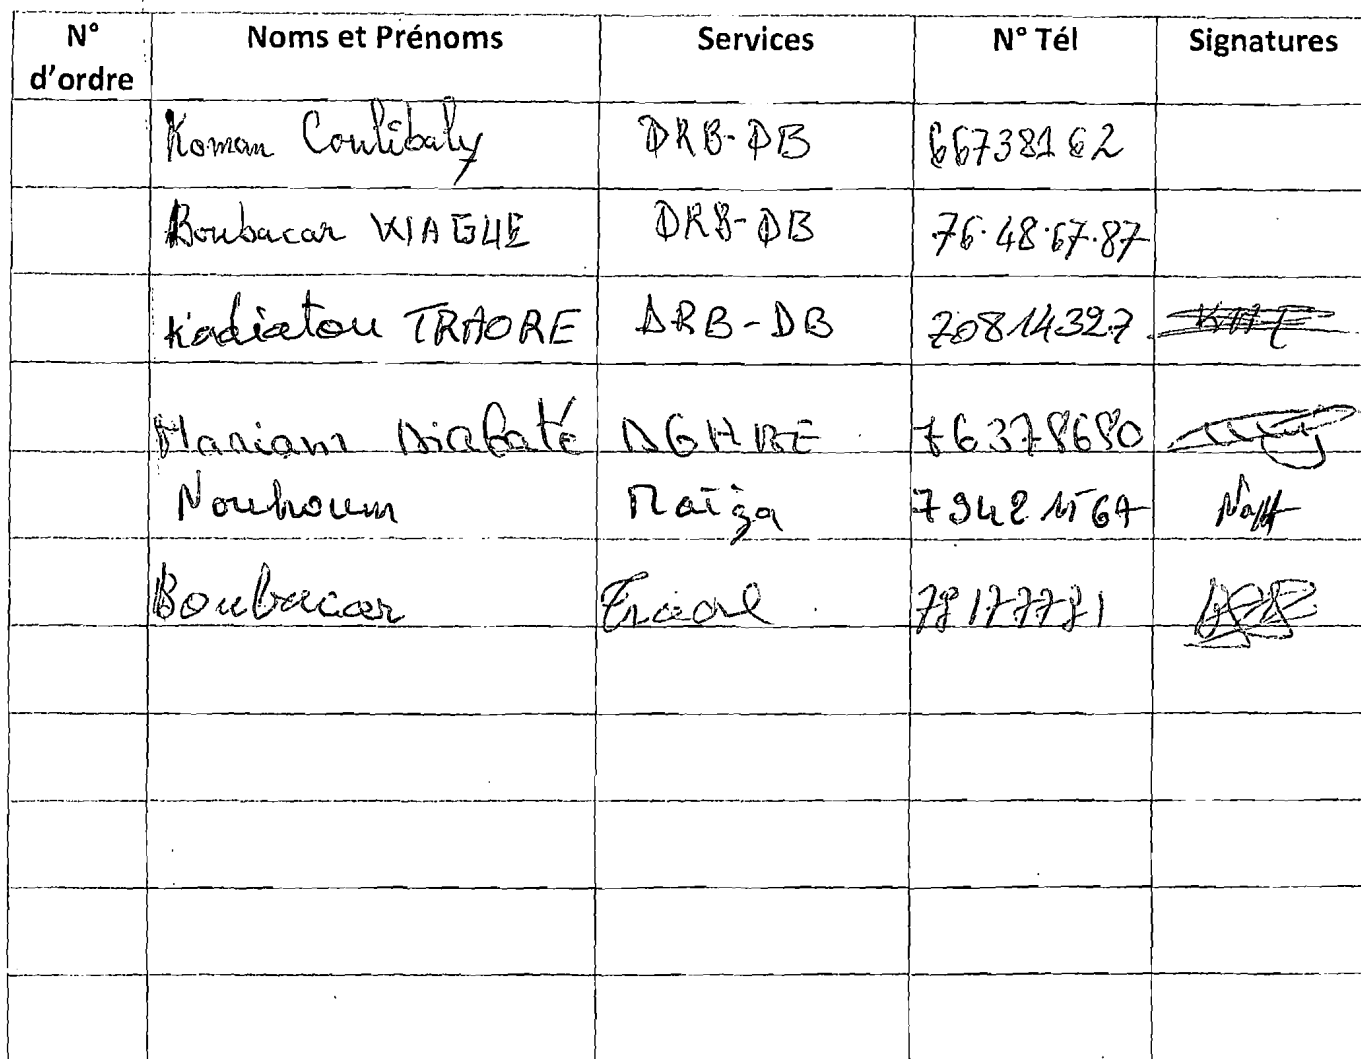 N° d'ordre Noms et Prénoms Services N° Tél Signatures
Koman Coulibaly DRB-DB 66738162
Boubacar DRB-DB 76.48.67.87
Kadiatou TRAORE DRB-DB 70814327
Mariam Diabaté 76378680
Nouhoum Maïga
Boubacar